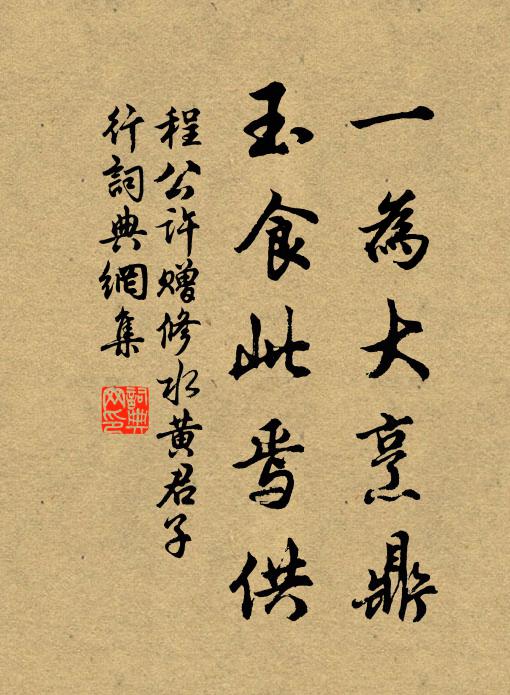 一為大烹鼎
玉食此焉供
程公許贈修水黄君子
行詞典網集
詞典
网印